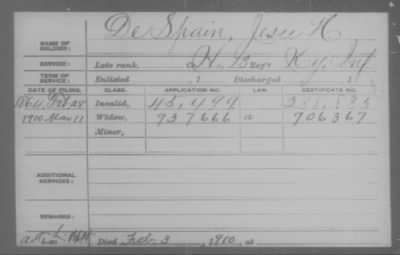 De Spain, Jesse H
NAME OF SOLDIER:
SERVICE: Late rank, H. 13 Reg't Ky. Inf
TERM OF SERVICE: Enlisted , 1 Discharged , 1
DATE OF FILING. CLASS. APPLICATION NO. LAW. CERTIFICATE NO.
1864, Feb 28 Invalid, 43,499
1910 Mar 11 Widow, 937666 a 706367
Minor,
ADDITIONAL SERVICES:
REMARKS:
Died Feb. 3, 1910, at